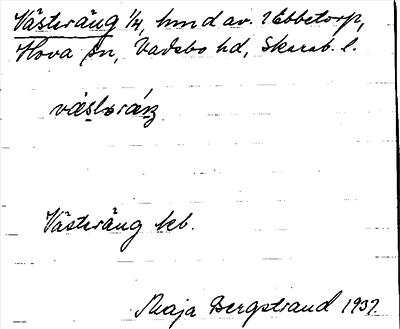 Västeräng 1/4, hmd av. Ebbetorp,
Hova sn, Vadsbo hd, Skarab. l.
Västeräng kb.
Maja Bergstrand 1937.